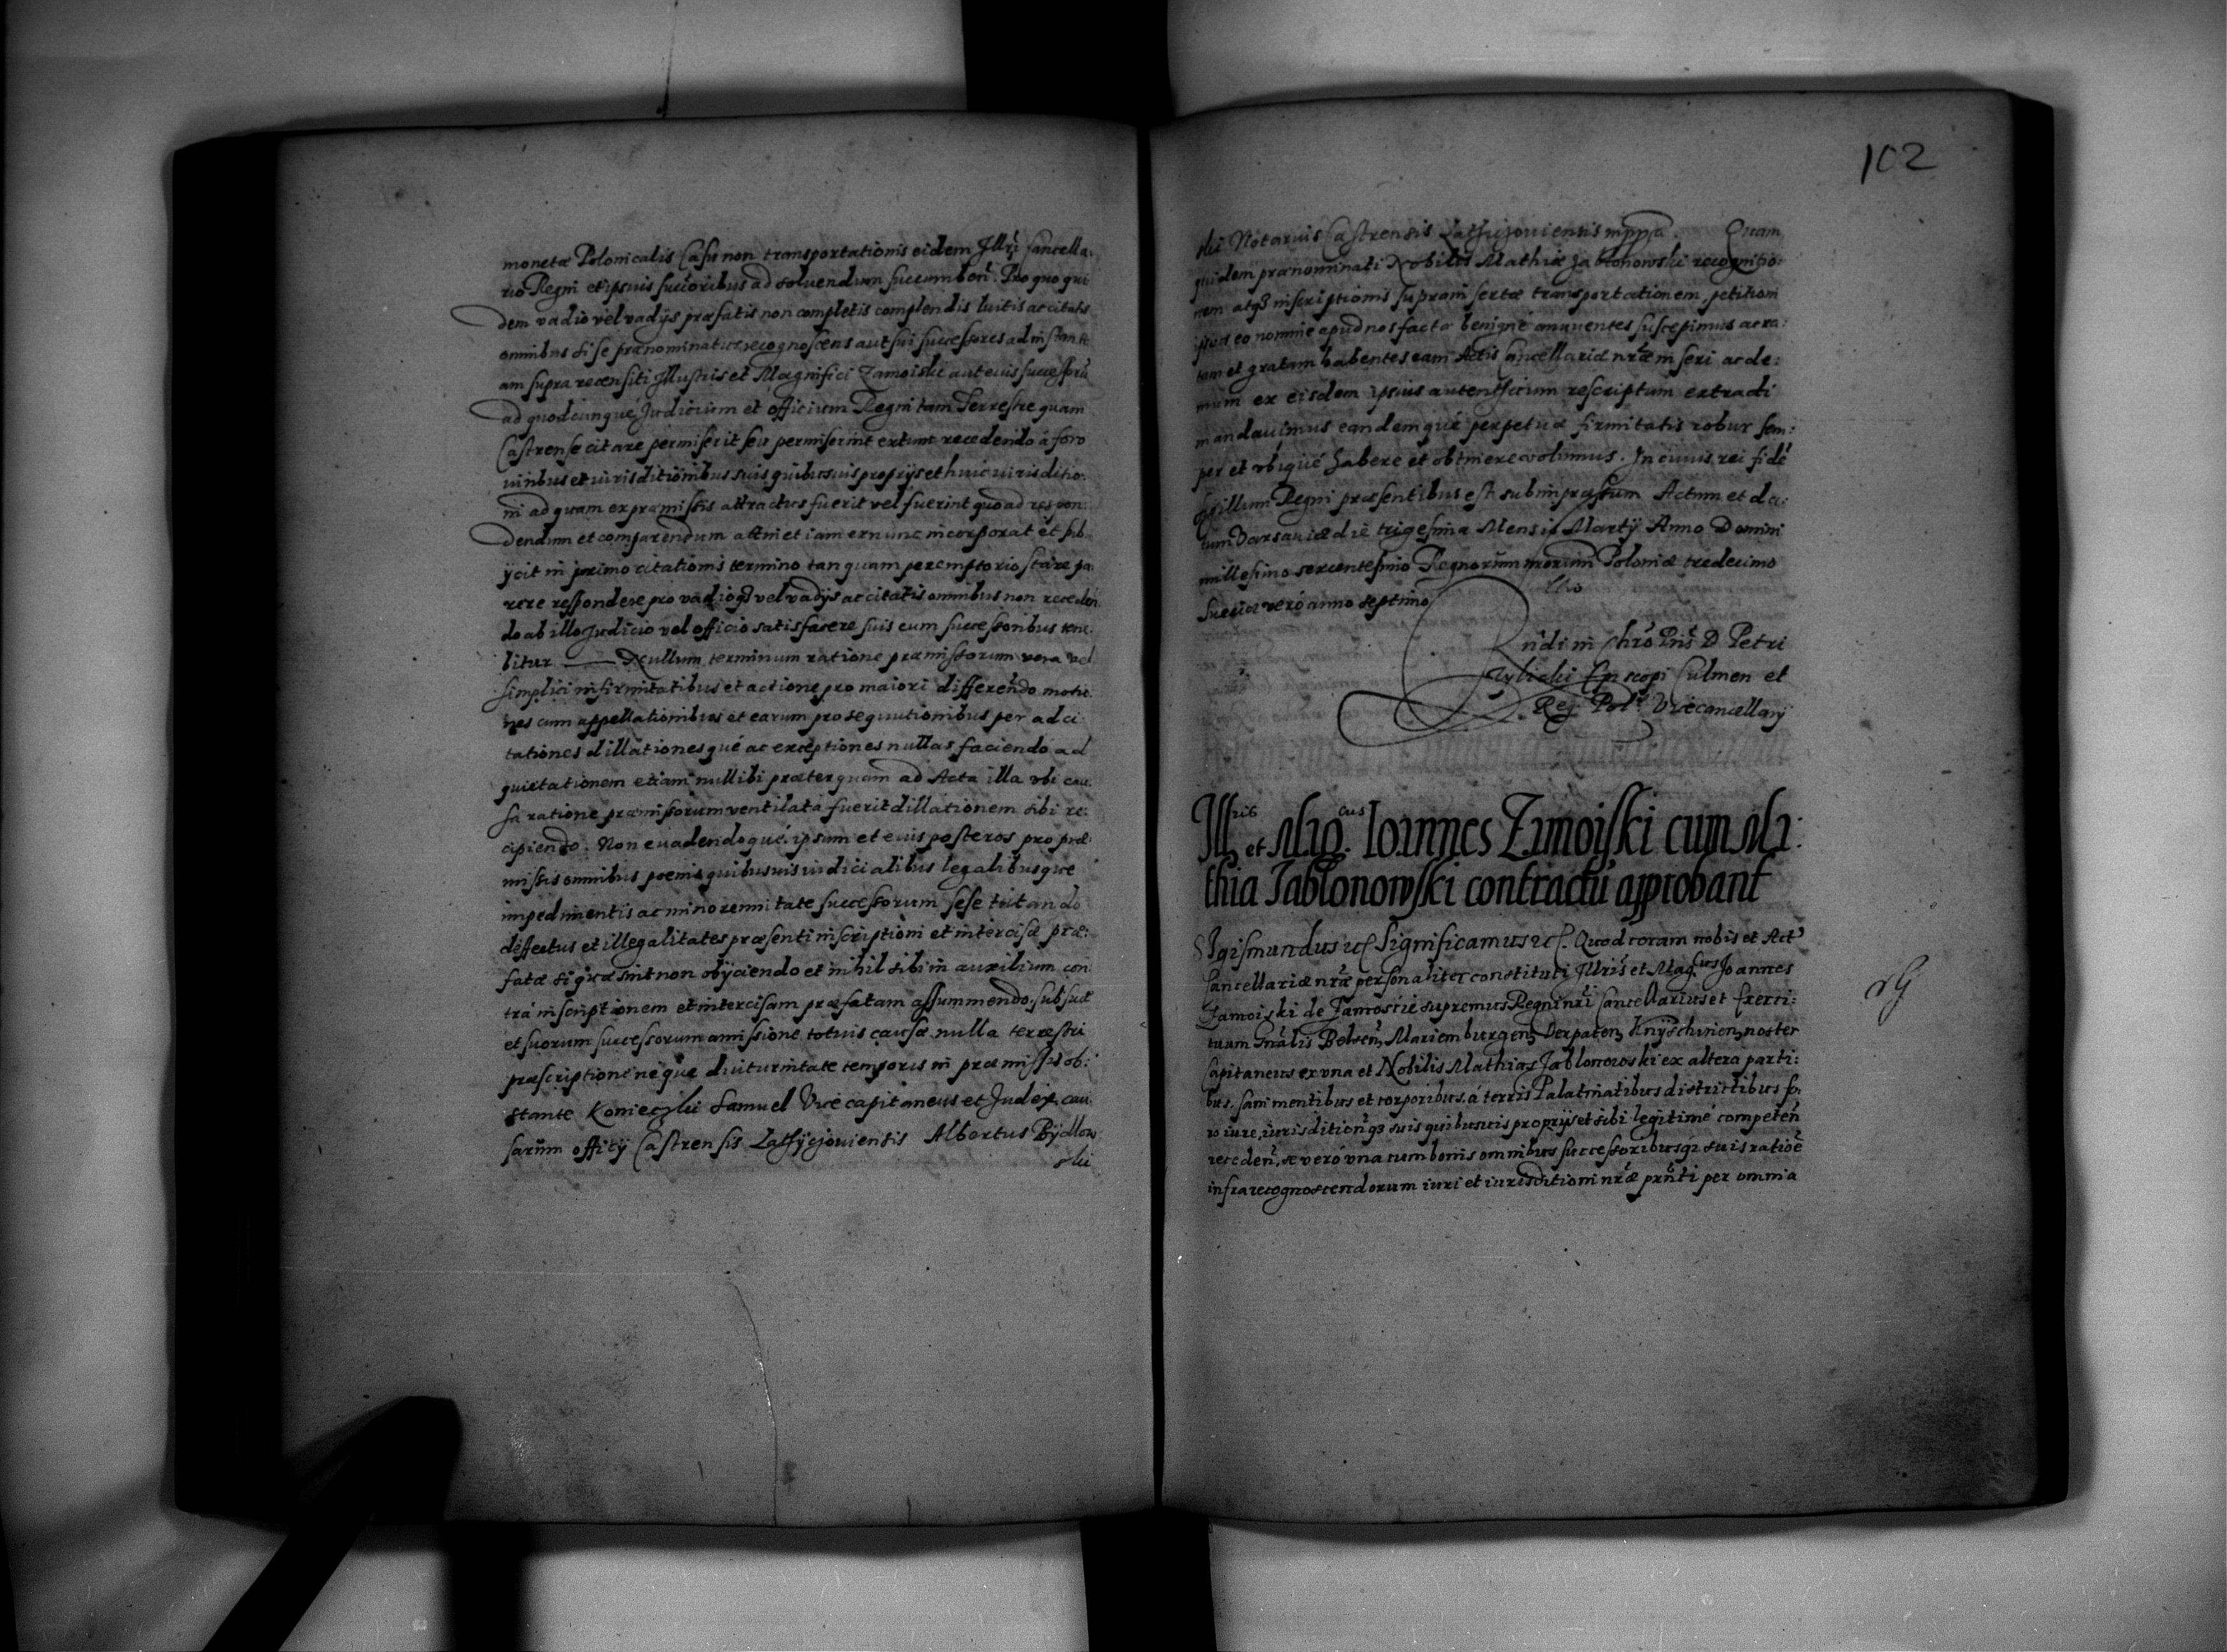 monetæ Polonicalis Casu non transportationis eidem Illri Cancella:
rio Regni et ipsuis succoribus ad soluendum succumben. Pro quo qui
dem vadio vel vadijs præfatis non completis complendis luitis ac citatis
omnibus si se prænominatus recognoscens aut sui successores ad instanti
am supra recensiti Illustris et Magnifici Zamoiski aut eius successorũ
ad quodcunqué Judicium et officium Regni tam Terrestre quam
Castrense citare permiserit seu permiserint extunc recedendo á foro
iuribus et iurisditionibus suis quibusuis proprijs et huic iurisditio:
ni ad quam ex præmissis attractus fuerit vel fuerint quo ad respon:
dendum et comparendum attinet iam ex nunc incorporat et sub
ijcit in primo citationis termino tanquam peremptorio stare pa:
rere respondere pro vadioq3 vel vadijs ac citatis omnibus non receden
do ab illo Judicio vel officio satisfacere suis cum successoribus tene:
bitur — Nullum terminum ratione præmissorum vera vel
simplici infirmitatibus et actione pro maiori differendo motio:
nes cum appellationibus et earum prosequutionibus per ad ci
tationes dillationesqué ac exceptiones nullas faciendo ad
quietationem etiam nullibi præterquam ad Acta illa vbi cau:
sa ratione præmissorum ventilata fuerit dillationem sibi re:
cipiendo. Non euadendoqué ipsum et eius posteros pro præ:
missis omnibus poenis quibusuis iudicialibus legalibusque
impedimentis ac minorennitate successorum sese tutando
deffectus et illegalitates præsenti inscriptioni et intercisæ præ:
fatæ si quæ sint non obijciendo et nihil sibi in auxilium con
trá inscriptionem et intercisam præfatam assummendo, sub suæ
et suorum successorum amissione totius causæ nulla terrestri
præscriptione neque diuturnitate temporis in præmissis ob:
stante Konieczki Samuel Vicecapitaneus et Judex cau:
sarũm officij Castrensis Lathyczouiensis Albertus Bydlow
ski
102
ski Notarius Castrensis Lathyczouiensis mppa. Quam
quidem prænominati Nobilis Mathiæ Jablonowski recognitio:
nem atq3 inscriptionis suprainsertæ transportationem, petitioni
pro eo nomine apud nos factæ benigné annuentes suscepimus ac ra:
tam et gratam habentes eam Actis Cancellariæ nræ inseri ac de:
mum ex eisdem ipsius autenticum rescriptum extradi
mandauimus eandemqué perpetuæ firmitatis robur sem:
per et vbiqué habere et obtinere volumus. In cuius rei fidẽ
Sigillum Regni præsentibus est subimpressum Actum et da:
tum Varsauiæ die trigesima Mensis Martij Anno Domini
millesimo sexcentesimo Regnorum nrorum Poloniæ tredecimo
Sueciæ veró anno septimo
Rndi in Chro Pris D Petri
Tylicki Episcopi Culmen et
Reg Pol. Vicecancellarij
Illris et Mag.cus Ioannes Zamoiski cum Ma:
thia Jablonowski contractũ approbant
Sigismundus etc Significamus etc. Quod coram nobis et Act'
Cancellariæ nræ personaliter constituti Illris et Mag.cus Joannes
Zamoiski de Zamoscie supremus Regni nri Cancellarius et Exerci:
tuum Gnalis Belsen, Mariemburgen, Derpaten, Knyschinen, noster
Capitaneus ex vna et Nobilis Mathias Jablonowski ex altera parti:
bus, sani mentibus et corporibus, á terris Palatinatibus districtibus fo:
ro iure, iurisdition q3 suis quibusuis proprijs et sibi legitimé competen
receden, se veró vna cum bonis omnibus successoribusq3 suis ratioẽ
infra recognoscendorum iuri et iurisditioni nræ prnti per omnia